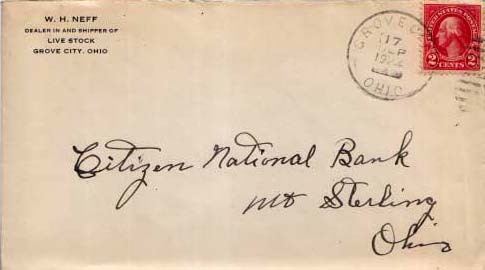 W. H. NEFF
DEALER IN AND SHIPPER OF
LIVE STOCK
GROVE CITY, OHIO
GROVE C
17
SEP
OHIO
UNITED STATES POSTAGE
2 CENTS 2
Citizen National Bank
Mt Sterling
Ohio